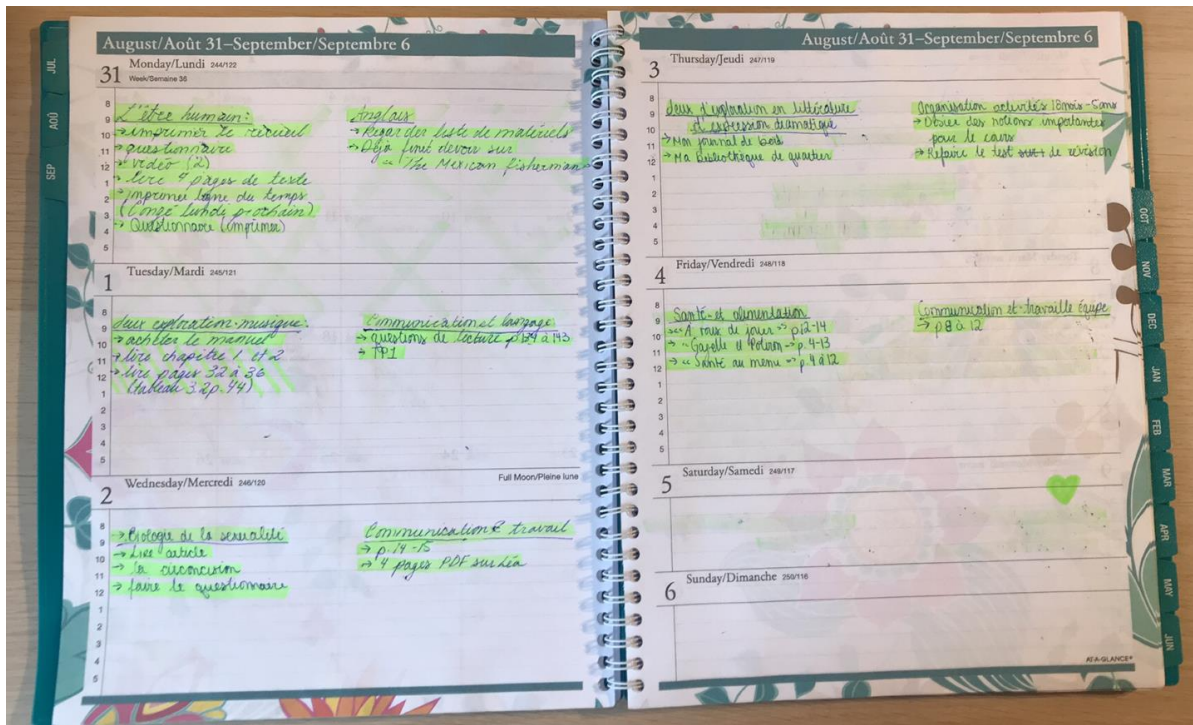 August/Août 31–September/Septembre 6
JUL
AOÛ
SEP
31 Monday/Lundi 244/122
Week/Semaine 36
8
9
10
11
12
1
2
3
4
5
L'être humain:
→ imprimer le recueil
→ questionnaire
→ vidéo (2)
→ lire 4 pages de texte
→ imprimer ligne du temps
(Congé lundi prochain)
→ Questionnaire (imprimer)
Anglais
→ Regarder liste de matériels
→ Déjà finit devoir sur
"The Mexican fisherman
1 Tuesday/Mardi 245/121
8
9
10
11
12
1
2
3
4
5
Jeux exploration musique:
→ acheter le manuel
→ lire chapitre 1 et 2
→ lire pages 32 à 36
(tableau 3.2 p.44)
Communication et langage
→ questions de lecture p.134 à 143
→ TP1
2 Wednesday/Mercredi 246/120
Full Moon/Pleine lune
8
9
10
11
12
1
2
3
4
5
→ Biologie de la sexualité
→ Lire article
→ la circoncision
→ faire le questionnaire
Communication & travail
→ p.14-15
→ 4 pages PDF sur Léa
August/Août 31–September/Septembre 6
3 Thursday/Jeudi 247/119
8
9
10
11
12
1
2
3
4
5
Jeux d'exploration en littérature
et expression dramatique
→ Mon journal de bord
→ Ma Bibliothèque de quartier
Organisation activités 18mois-5ans
→ Obtire des notions importantes
pour le cours
→ Refaire le test de révision
4 Friday/Vendredi 248/118
8
9
10
11
12
1
2
3
4
5
Santé et alimentation
→ "À nous de jouer → p.12-14
→ "Gazelle et Potiron → p.4-13
→ "Santé au menu → p.4 à 12
Communication et travaille équipe
→ p8 à 12
5 Saturday/Samedi 249/117
6 Sunday/Dimanche 250/116
AT-A-GLANCE®
OCT
NOV
DEC
JAN
FEB
MAR
APR
MAY
JUN